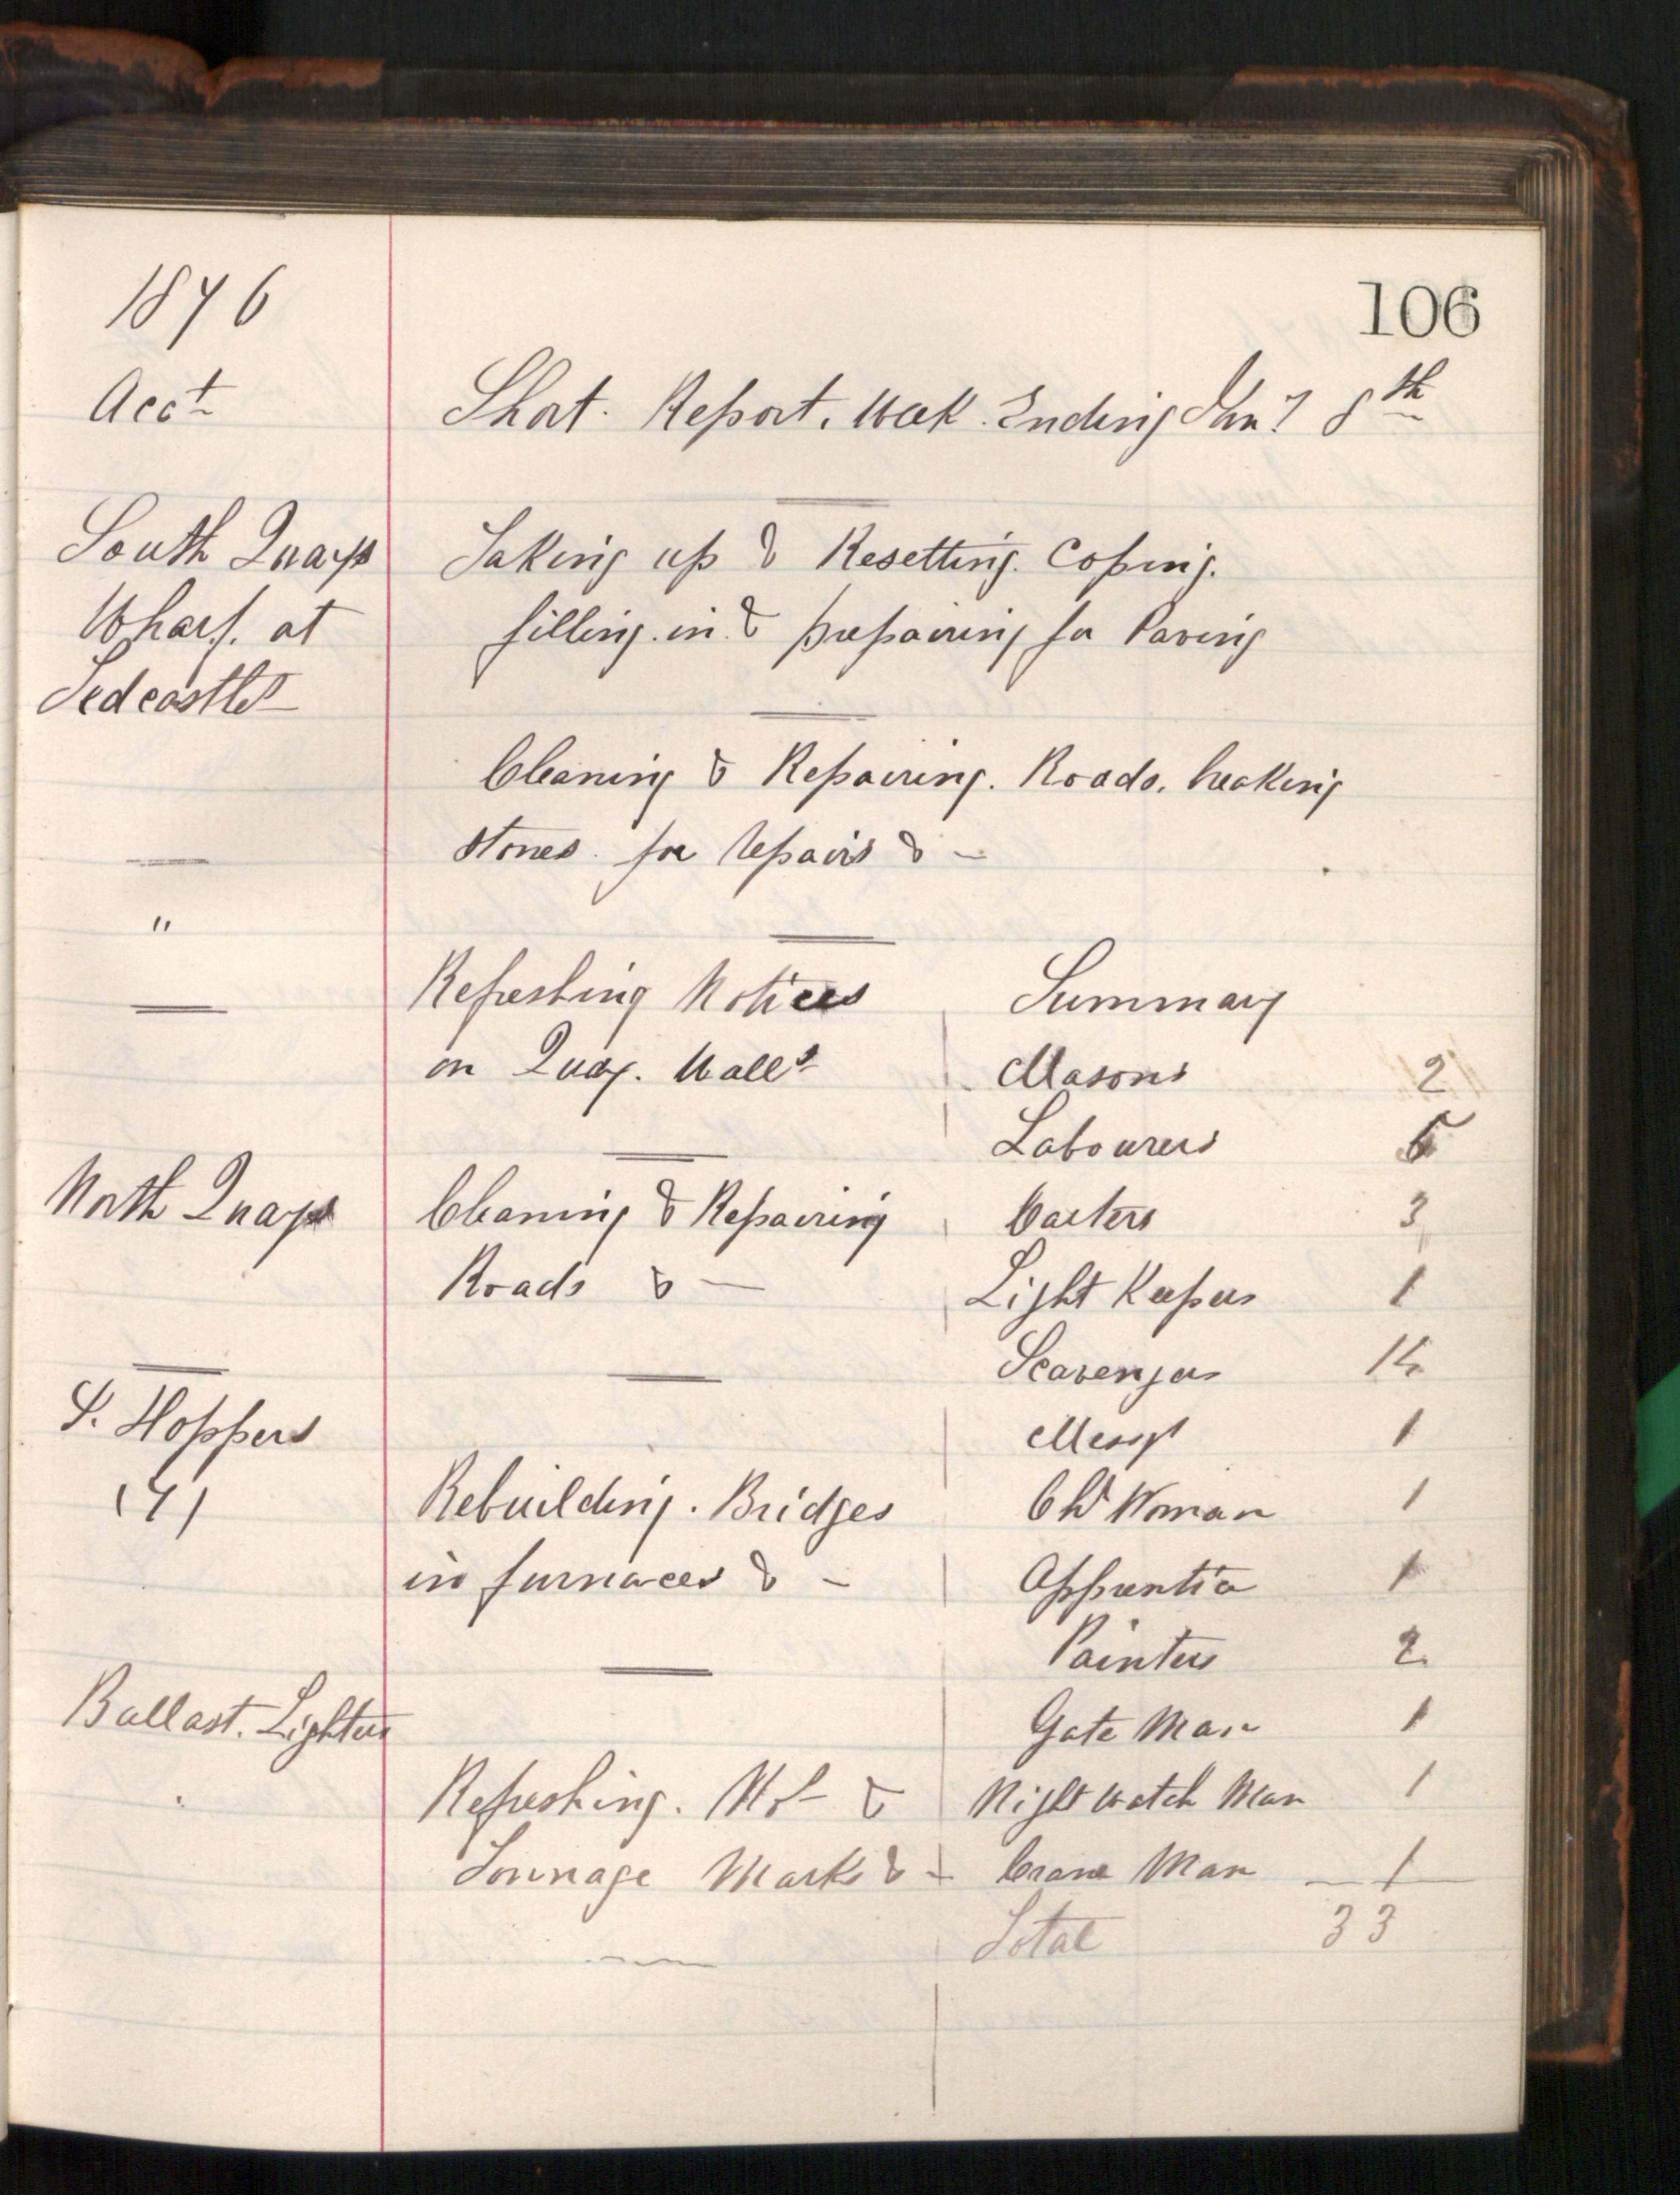 1876
106
Acct
Short. Report. Week. Ending Jany 8th
South Quays
Wharf. at
Tedcastles
Taking up & Resetting. Coping.
filling. in. & preparing for Paving
Cleaning & Repairing. Roads. breaking
Stones. for repairs & -
"
Refreshing Notices
on Quay. Walls
North Quays
Cleaning & Repairing
Roads & —
S. Hoppers
(4)
Rebuilding. Bridges
in furnaces & -
Ballast. Lighters
Refreshing. Nos &
Tonnage Marks & -
Summary
Masons 2
Labourers 5
Carters 3
Light Keepers 1
Scavengers 14
Messgr 1
Ch Woman 1
Apprentice 1
Painters 2
Gate Man 1
Night Watch Man 1
Crane Man 1
Total 33